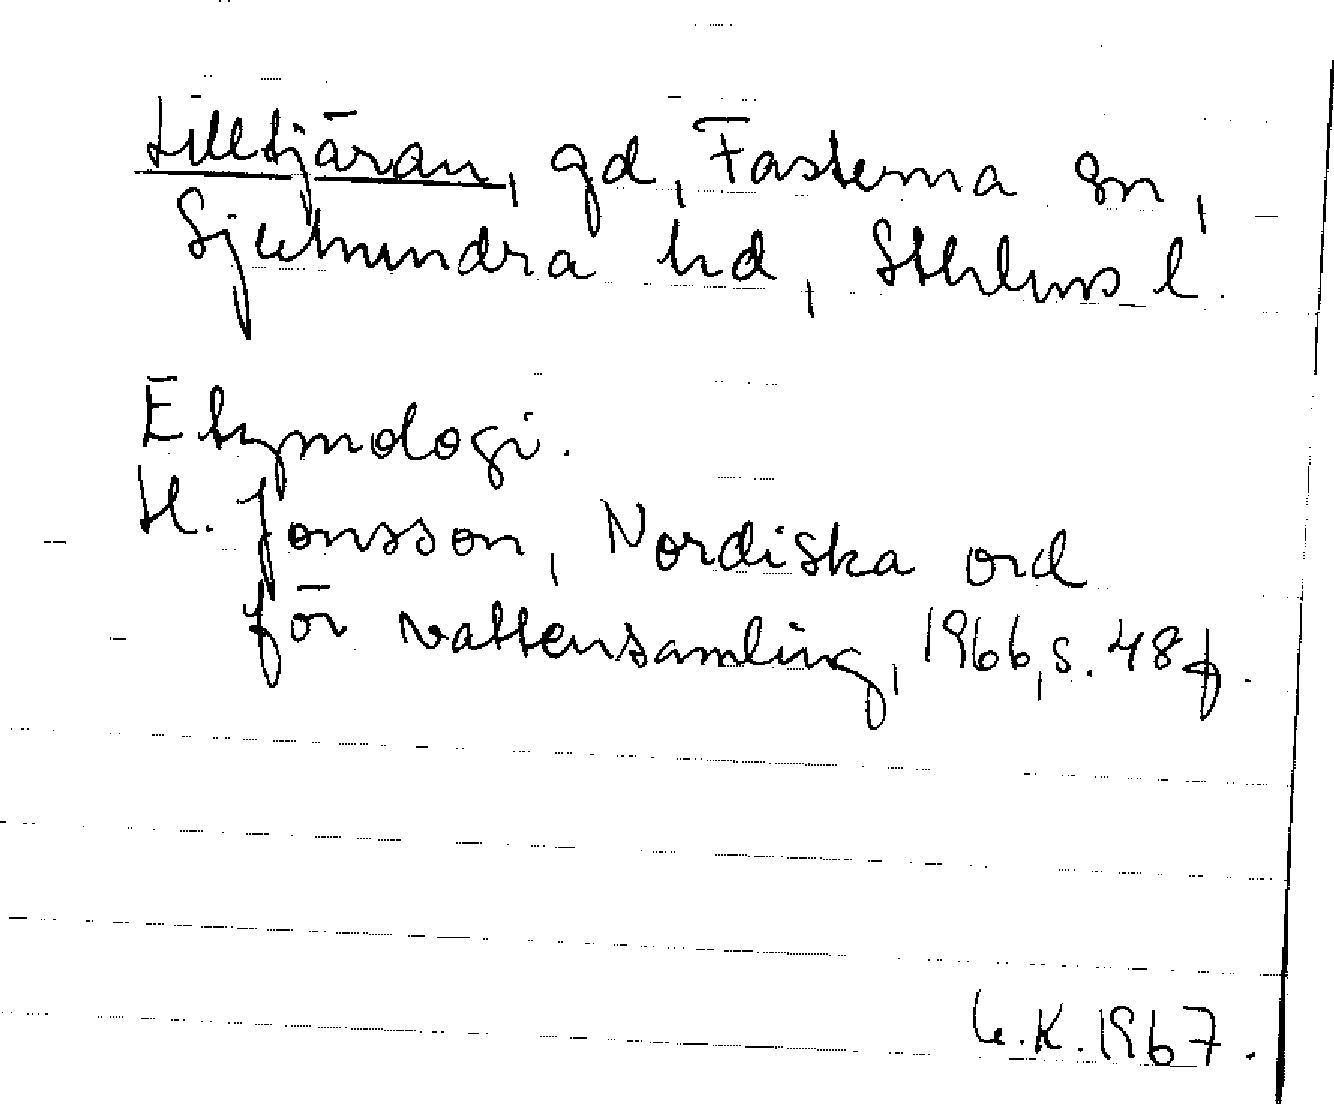 Lilltjäran, gd, Fasterna sn,
Sjuhundra hd, Sthlms l.
Etymologi.
H. Jonsson, Nordiska ord
för vattensamling, 1966, s. 48 f.
K. 1967.